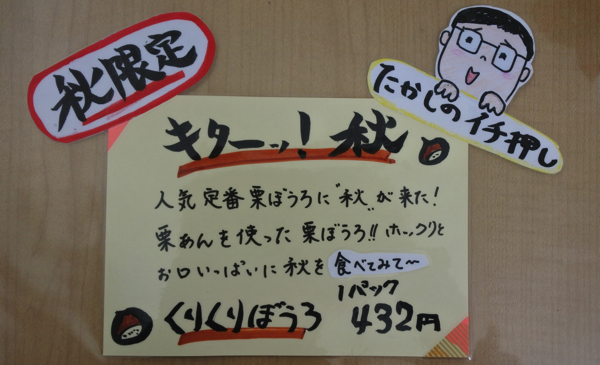 秋限定
たかしのイチ押し
キターッ!秋
人気定番栗ぼうろに"秋"が来た!
栗あんを使った栗ぼうろ!!ホックリと
お口いっぱいに秋を食べてみて〜
1パック
くりくりぼうろ 432円